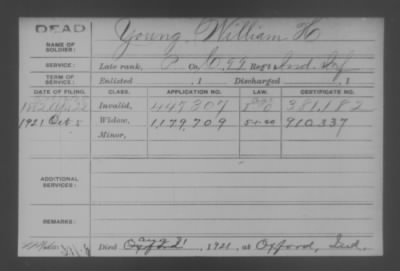 DEAD
NAME OF SOLDIER:
Young, William H
SERVICE:
Late rank, P. Co. G, 99 Reg't Ind. Inf
TERM OF SERVICE:
Enlisted , 1 Discharged , 1
DATE OF FILING. CLASS. APPLICATION NO. LAW. CERTIFICATE NO.
1882 Invalid, 447,307 381,182
1921 Oct. 5 Widow, 1,179,709 910,337
Minor,
ADDITIONAL SERVICES:
REMARKS:
Died Aug 21, 1921, at Oxford, Ind.